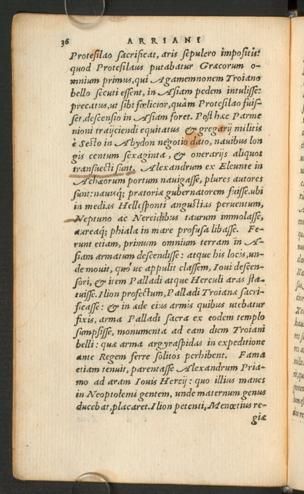 36 ARRIANI
Protesilao sacrificat, aris sepulcro impositis:
quod Protesilaus putabatur Græcorum o-
mnium primus, qui Agamemnonem Troiano
bello secuti essent, in Asiam pedem intulisse:
precatus, ut sibi fœlicior, quàm Protesilao fuis-
set, descensio in Asiam foret. Post hæc Parme
nioni traijciendi equitatus & gregarij militis
è Sesto in Abydon negotio dato, nauibus lon
gis centum sexaginta, & onerarijs aliquot
transuecti sunt. Alexandrum ex Eleunte in
Achæorum portum nauigasse, plures autores
sunt: nauisq; prætoriæ gubernatorem fuisse. ubi
in medias Hellesponti angustias peruentum,
Neptuno ac Nereidibus taurum immolasse,
aureaq; phiala in mare profusa libasse. Fe-
runt etiam, primum omnium terram in A-
siam armatum descendisse: atque his locis, un-
de mouit, quo uc appulit classem, Ioui descen-
sori, & item Palladi atque Herculi aras sta-
tuisse. Ilion profectum, Palladi Troianæ sacri-
ficasse: & in æde eius armis quibus utebatur
fixis, arma Palladi sacra ex eodem templo
sumpsisse, monumenta ad eam diem Troiani
belli: quæ arma argyraspidas in expeditione
ante Regem ferre solitos perhibent. Fama
etiam tenuit, parentasse Alexandrum Pria-
mo ad aram Iouis Hercij: quo illius manes
in Neoptolemi gentem, unde maternum genus
ducebat, placaret. Ilion petenti, Menœtius re-
giæ